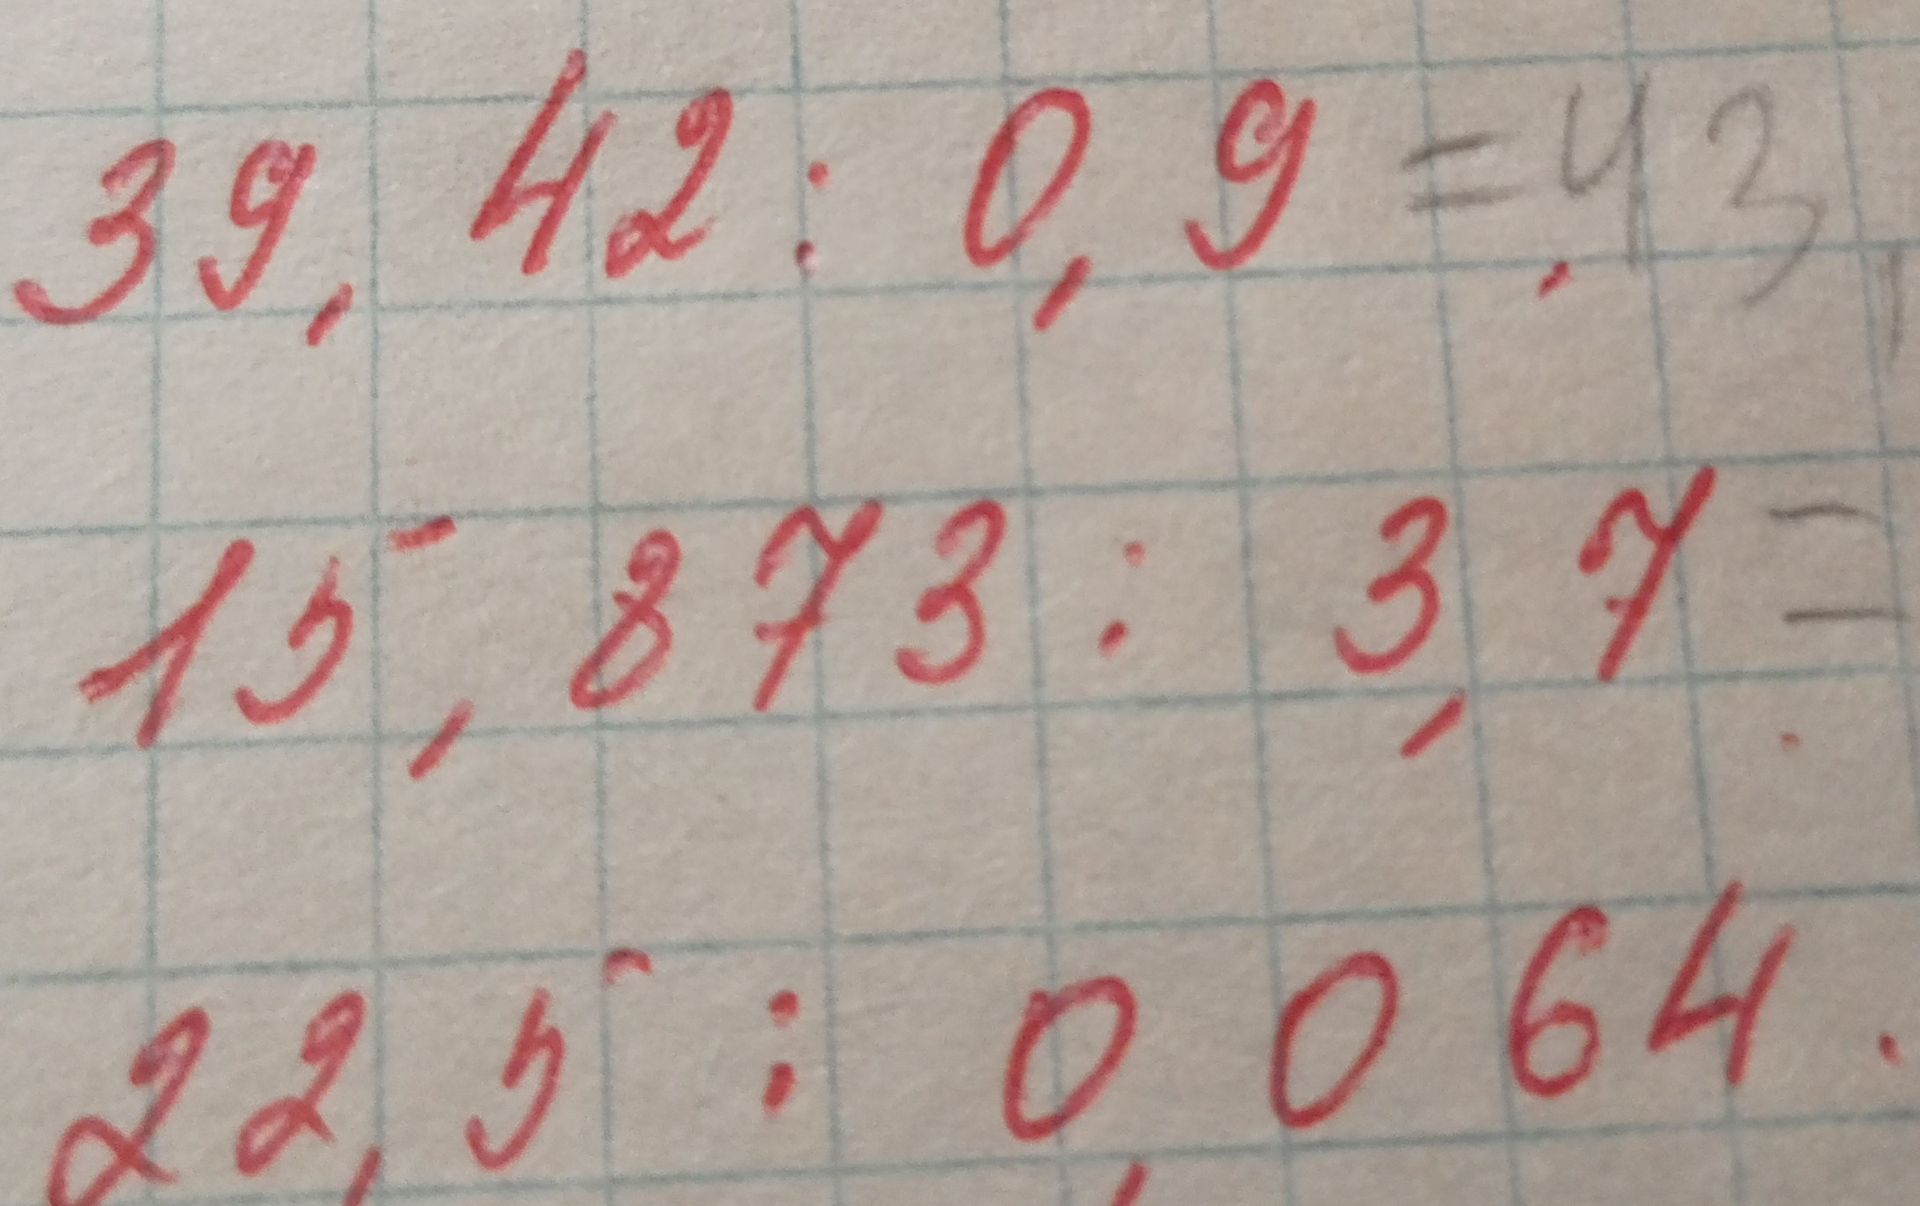 39,42 : 0,9 = 43,
15,873 : 3,7 =
22,5 : 0,064.